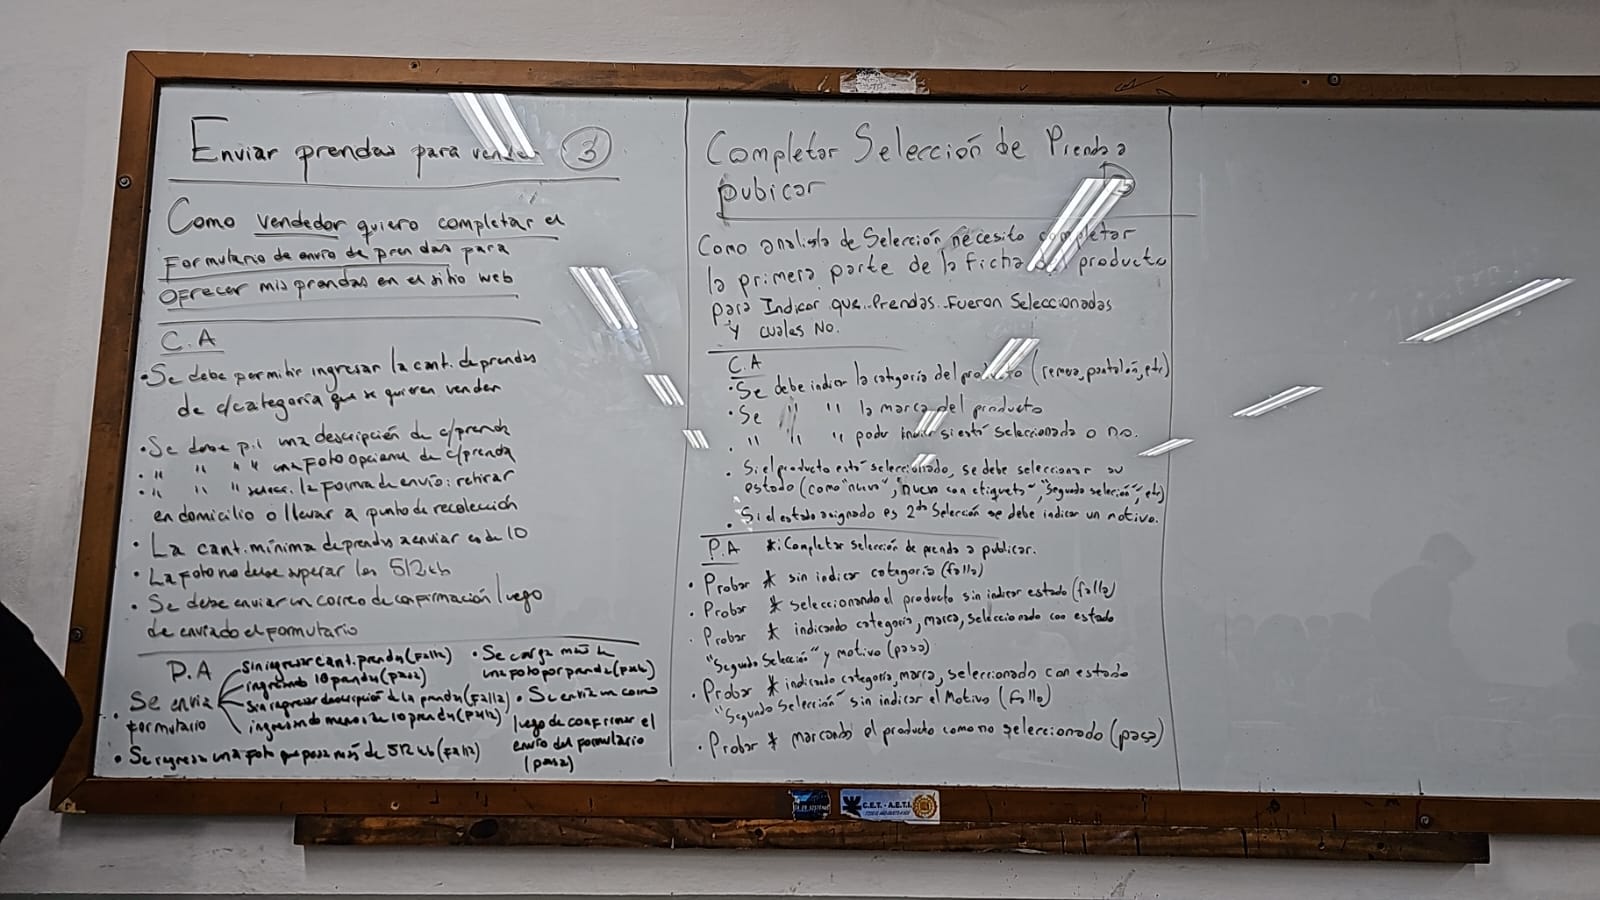 Enviar prendas para vender 3
Como vendedor quiero completar el
formulario de envío de prendas para
ofrecer mis prendas en el sitio web
C.A
• Se debe permitir ingresar la cant. de prendas
de c/categoría que se quieren vender
• Se debe p.i una descripción de c/prenda
• " " " " una foto opcional de c/prenda
• " " " selecc. la forma de envío: retirar
en domicilio o llevar a punto de recolección
• La cant. mínima de prendas a enviar es de 10
• La foto no debe superar los 512 kb
• Se debe enviar un correo de confirmación luego
de enviado el formulario
P.A
• Se envía
formulario
sin ingresar cant. prendas (Falla)
ingresando 10 prendas (pasa)
sin ingresar descripción de la prenda (Falla)
ingresando menos de 10 prendas (Falla)
• Se ingresa una foto que pesa más de 512 kb (Falla)
• Se carga más de
una foto por prenda
• Se envía un correo
luego de confirmar el
envío del formulario
(pasa)
Completar Selección de Prenda a
pubicar
Como analista de Selección necesito completar
la primera parte de la ficha del producto
para Indicar que Prendas Fueron Seleccionadas
y cuales No.
C.A
• Se debe indicar la categoría del producto (remera, pantalón, etc)
• Se " " la marca del producto
• " " " poder indicar si está seleccionada o no.
• Si el producto está seleccionado, se debe seleccionar su
estado (como "nuevo", "nuevo con etiqueta", "Segunda selección", etc)
• Si el estado asignado es 2da Selección se debe indicar un motivo.
P.A *: Completar selección de prenda a publicar.
• Probar * sin indicar categoría (falla)
• Probar * seleccionando el producto sin indicar estado (falla)
• Probar * indicando categoría, marca, seleccionado con estado
"Segunda Selección" y motivo (pasa)
• Probar * indicando categoría, marca, seleccionado con estado
"Segunda Selección" sin indicar el Motivo (falla)
• Probar * marcando el producto como no seleccionado (pasa)
C.E.T. - A.E.T.I.